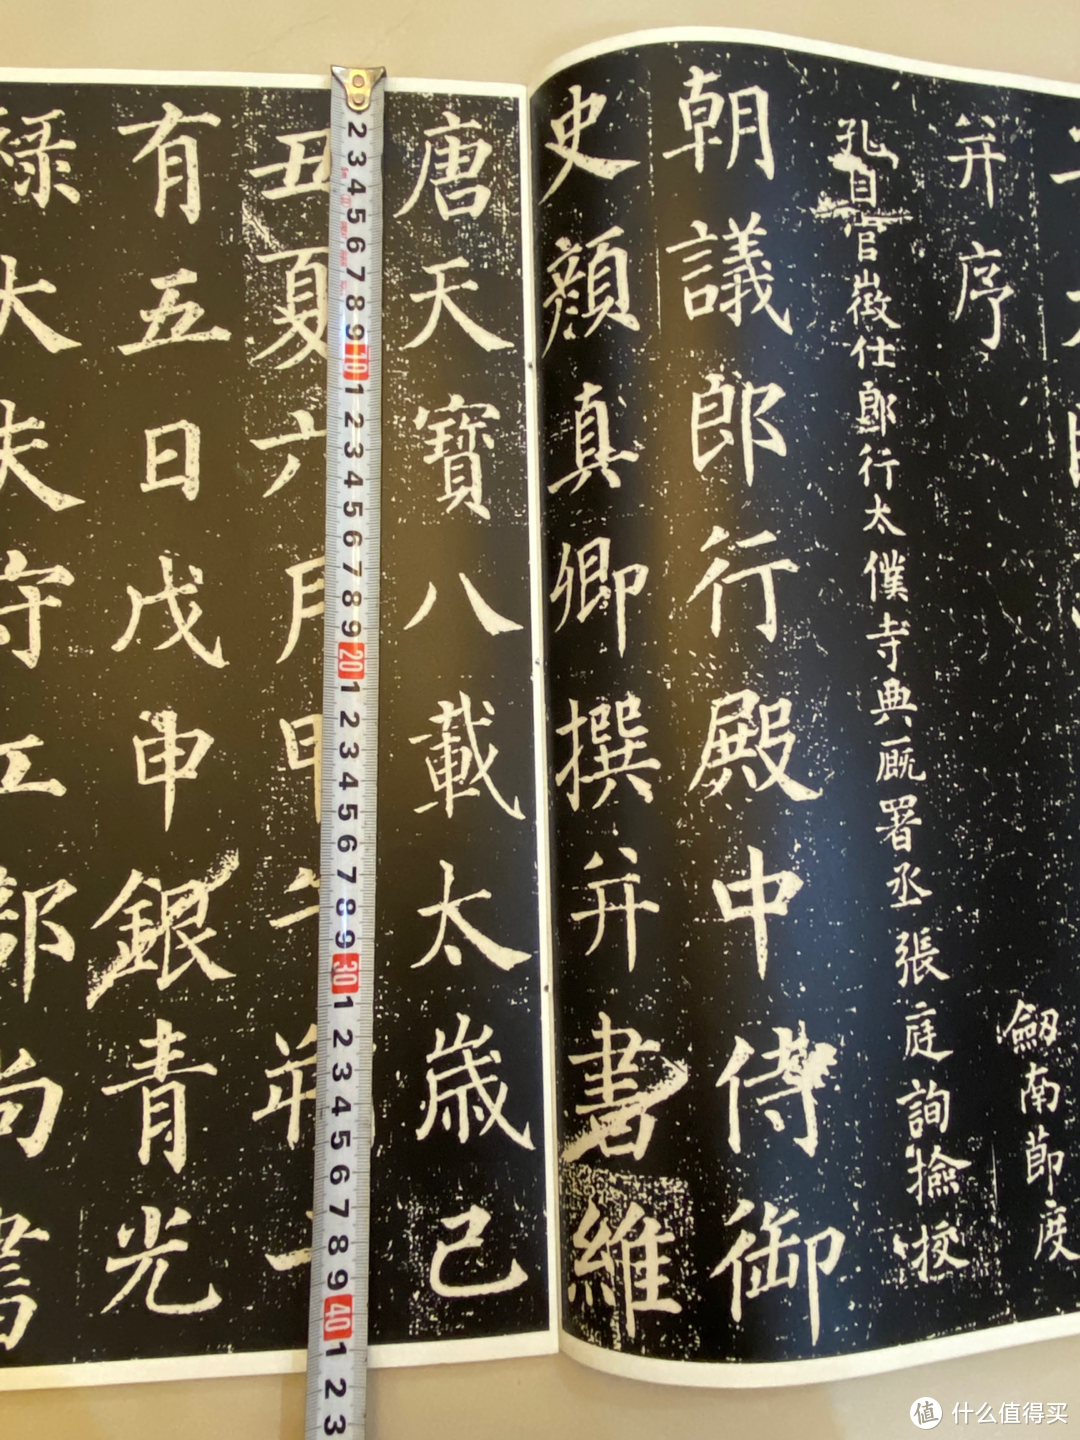 并序
劔南節度
孔目官徵仕郎行太僕寺典厩署丞張庭詢撿挍
朝議郎行殿中侍御
史顏真卿撰并書維
唐天寶八載太歲己
丑夏六月甲午朔十
有五日戊申銀青光
祿大夫守工部尚書
2 3 4 5 6 7 8 9 10 1 2 3 4 5 6 7 8 9 20 1 2 3 4 5 6 7 8 9 30 1 2 3 4 5 6 7 8 9 40 1 2 3
值 什么值得买